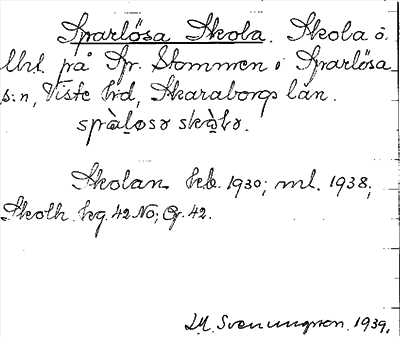 Sparlösa Skola. Skola å
Utst. på Sp. Stommen i Sparlösa
s:n, Viste hd, Skaraborgs län.
spàlǫsə skǫ̀lə.
Skolan keb. 1930; ml. 1938;
Skolh. kg. 42 No; Cg. 42.
Svenungson. 1939.